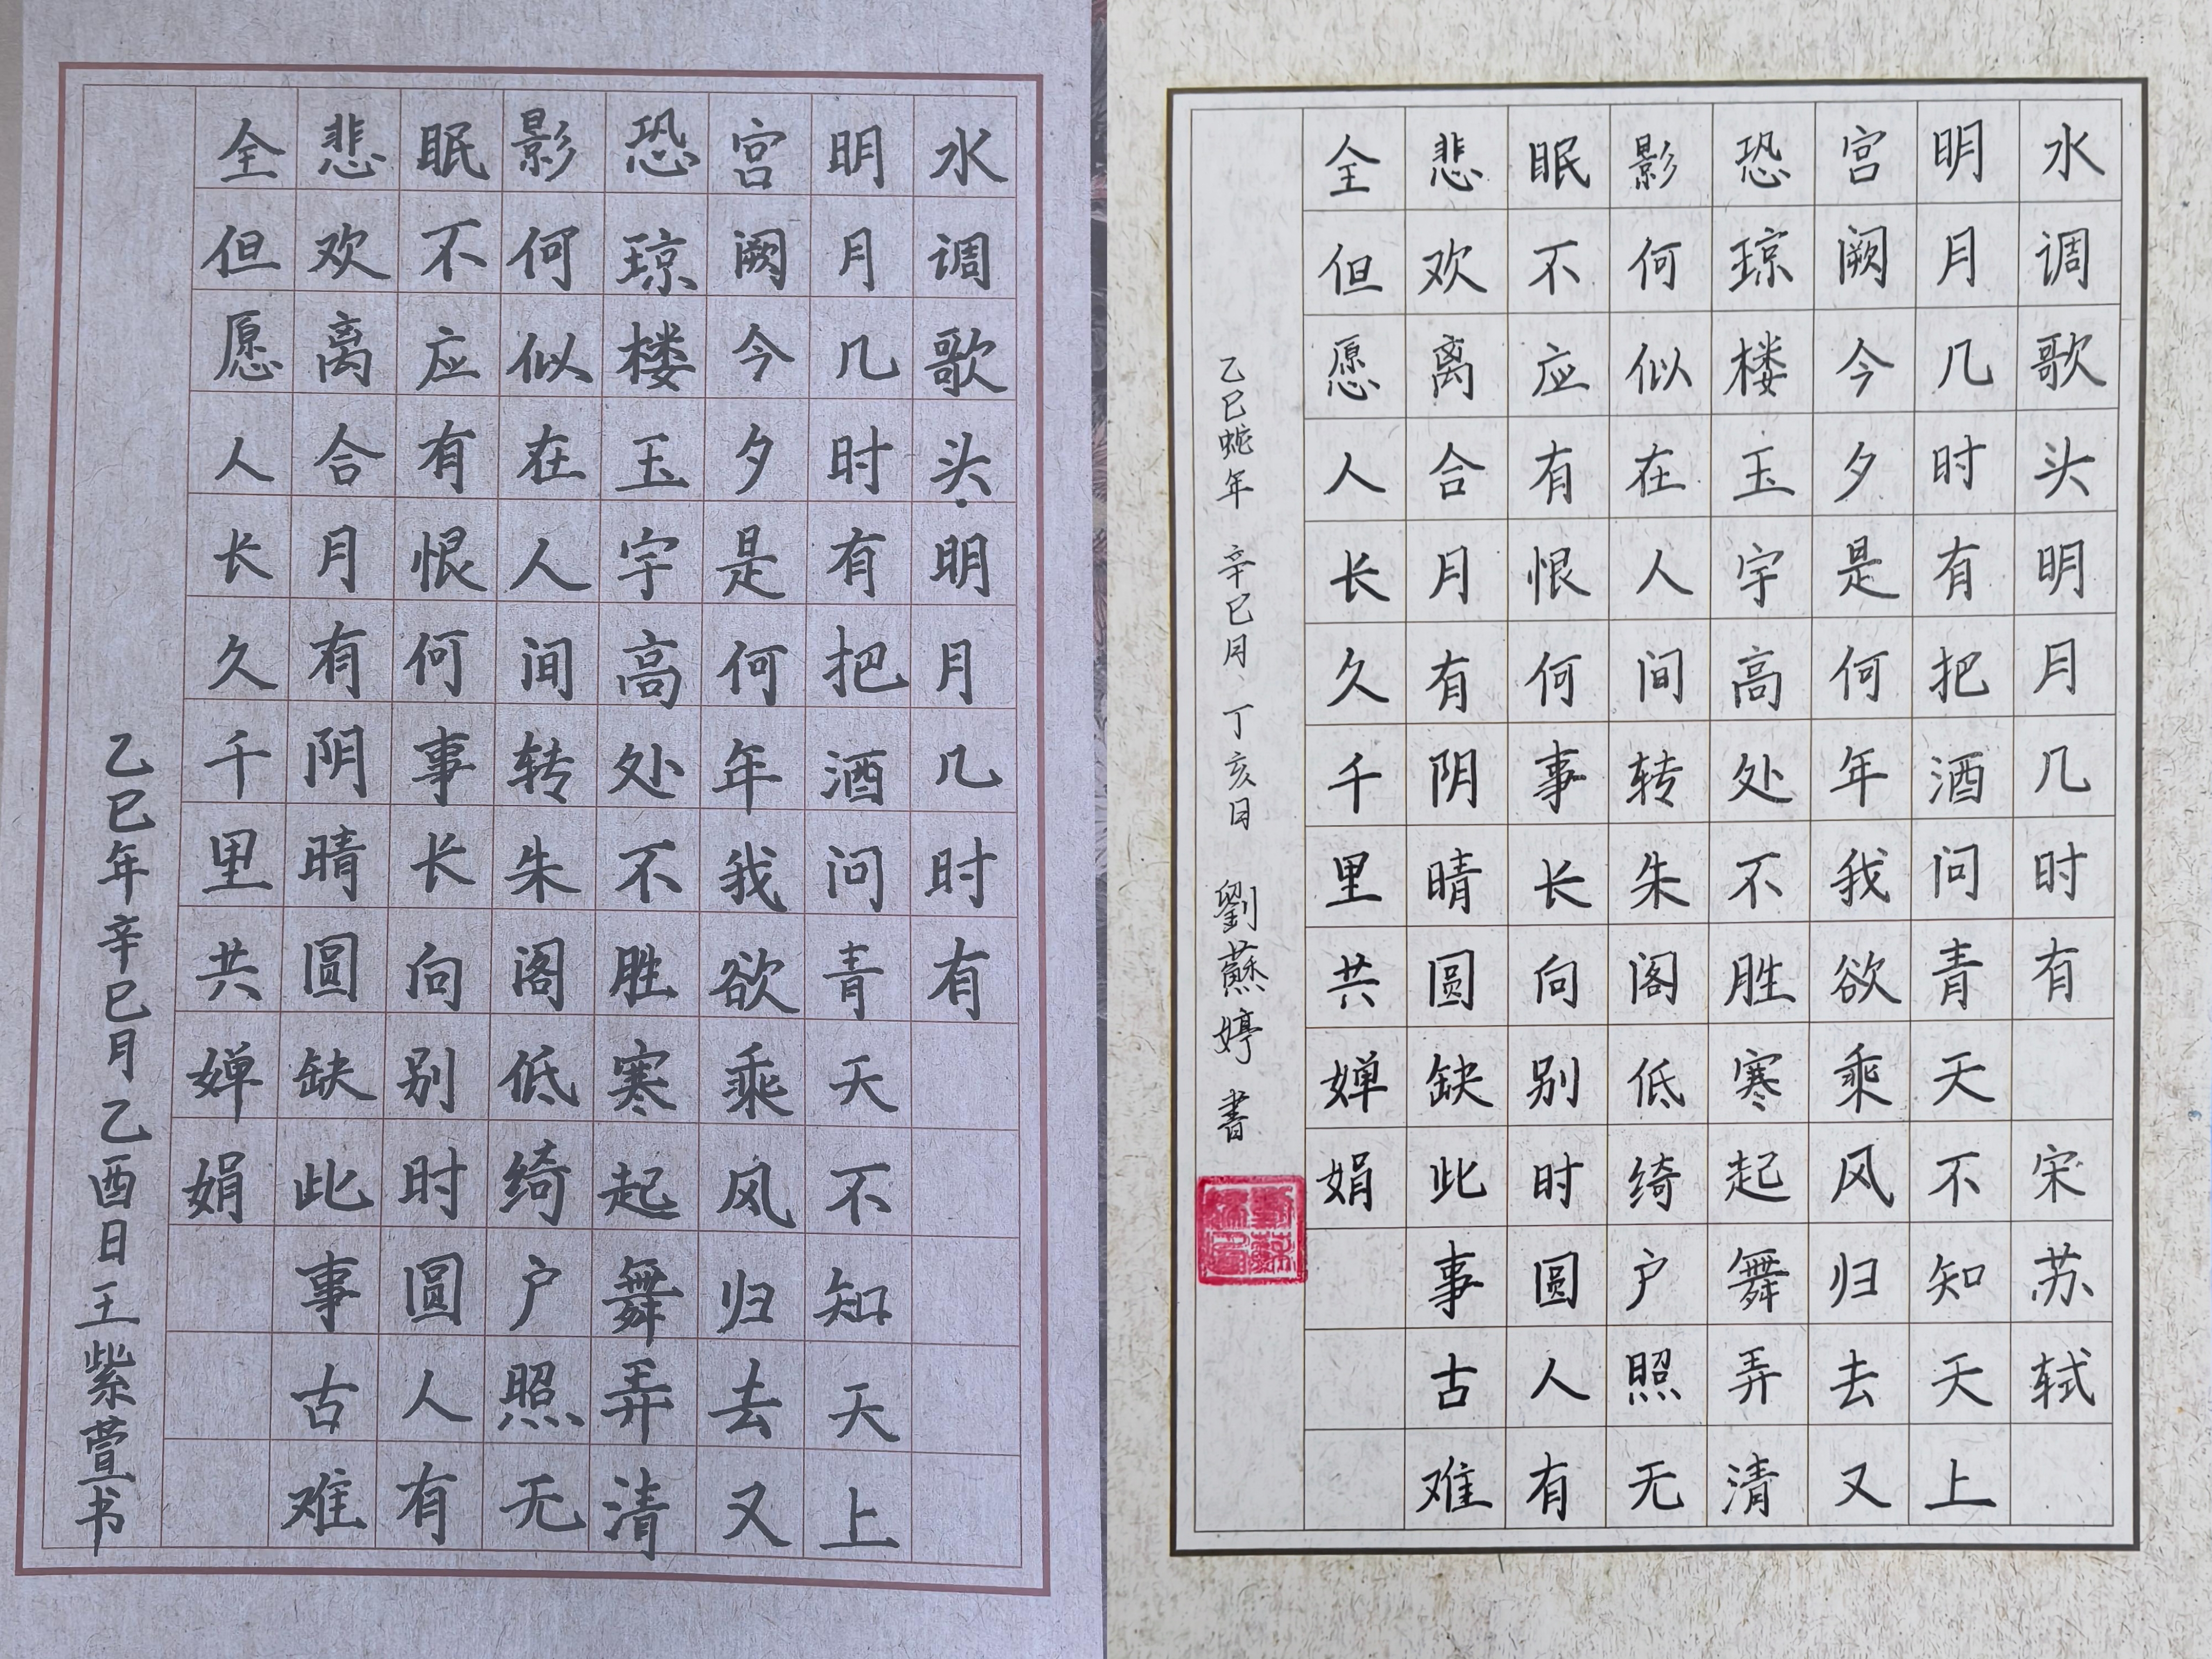 水调歌头·明月几时有
明月几时有把酒问青天不知天上
宫阙今夕是何年我欲乘风归去又
恐琼楼玉宇高处不胜寒起舞弄清
影何似在人间转朱阁低绮户照无
眠不应有恨何事长向别时圆人有
悲欢离合月有阴晴圆缺此事古难
全但愿人长久千里共婵娟
乙巳年辛巳月乙酉日王紫萱书
水调歌头明月几时有 宋苏轼
明月几时有把酒问青天不知天上
宫阙今夕是何年我欲乘风归去又
恐琼楼玉宇高处不胜寒起舞弄清
影何似在人间转朱阁低绮户照无
眠不应有恨何事长向别时圆人有
悲欢离合月有阴晴圆缺此事古难
全但愿人长久千里共婵娟
乙巳蛇年 辛巳月、丁亥日 劉蘇婷 書